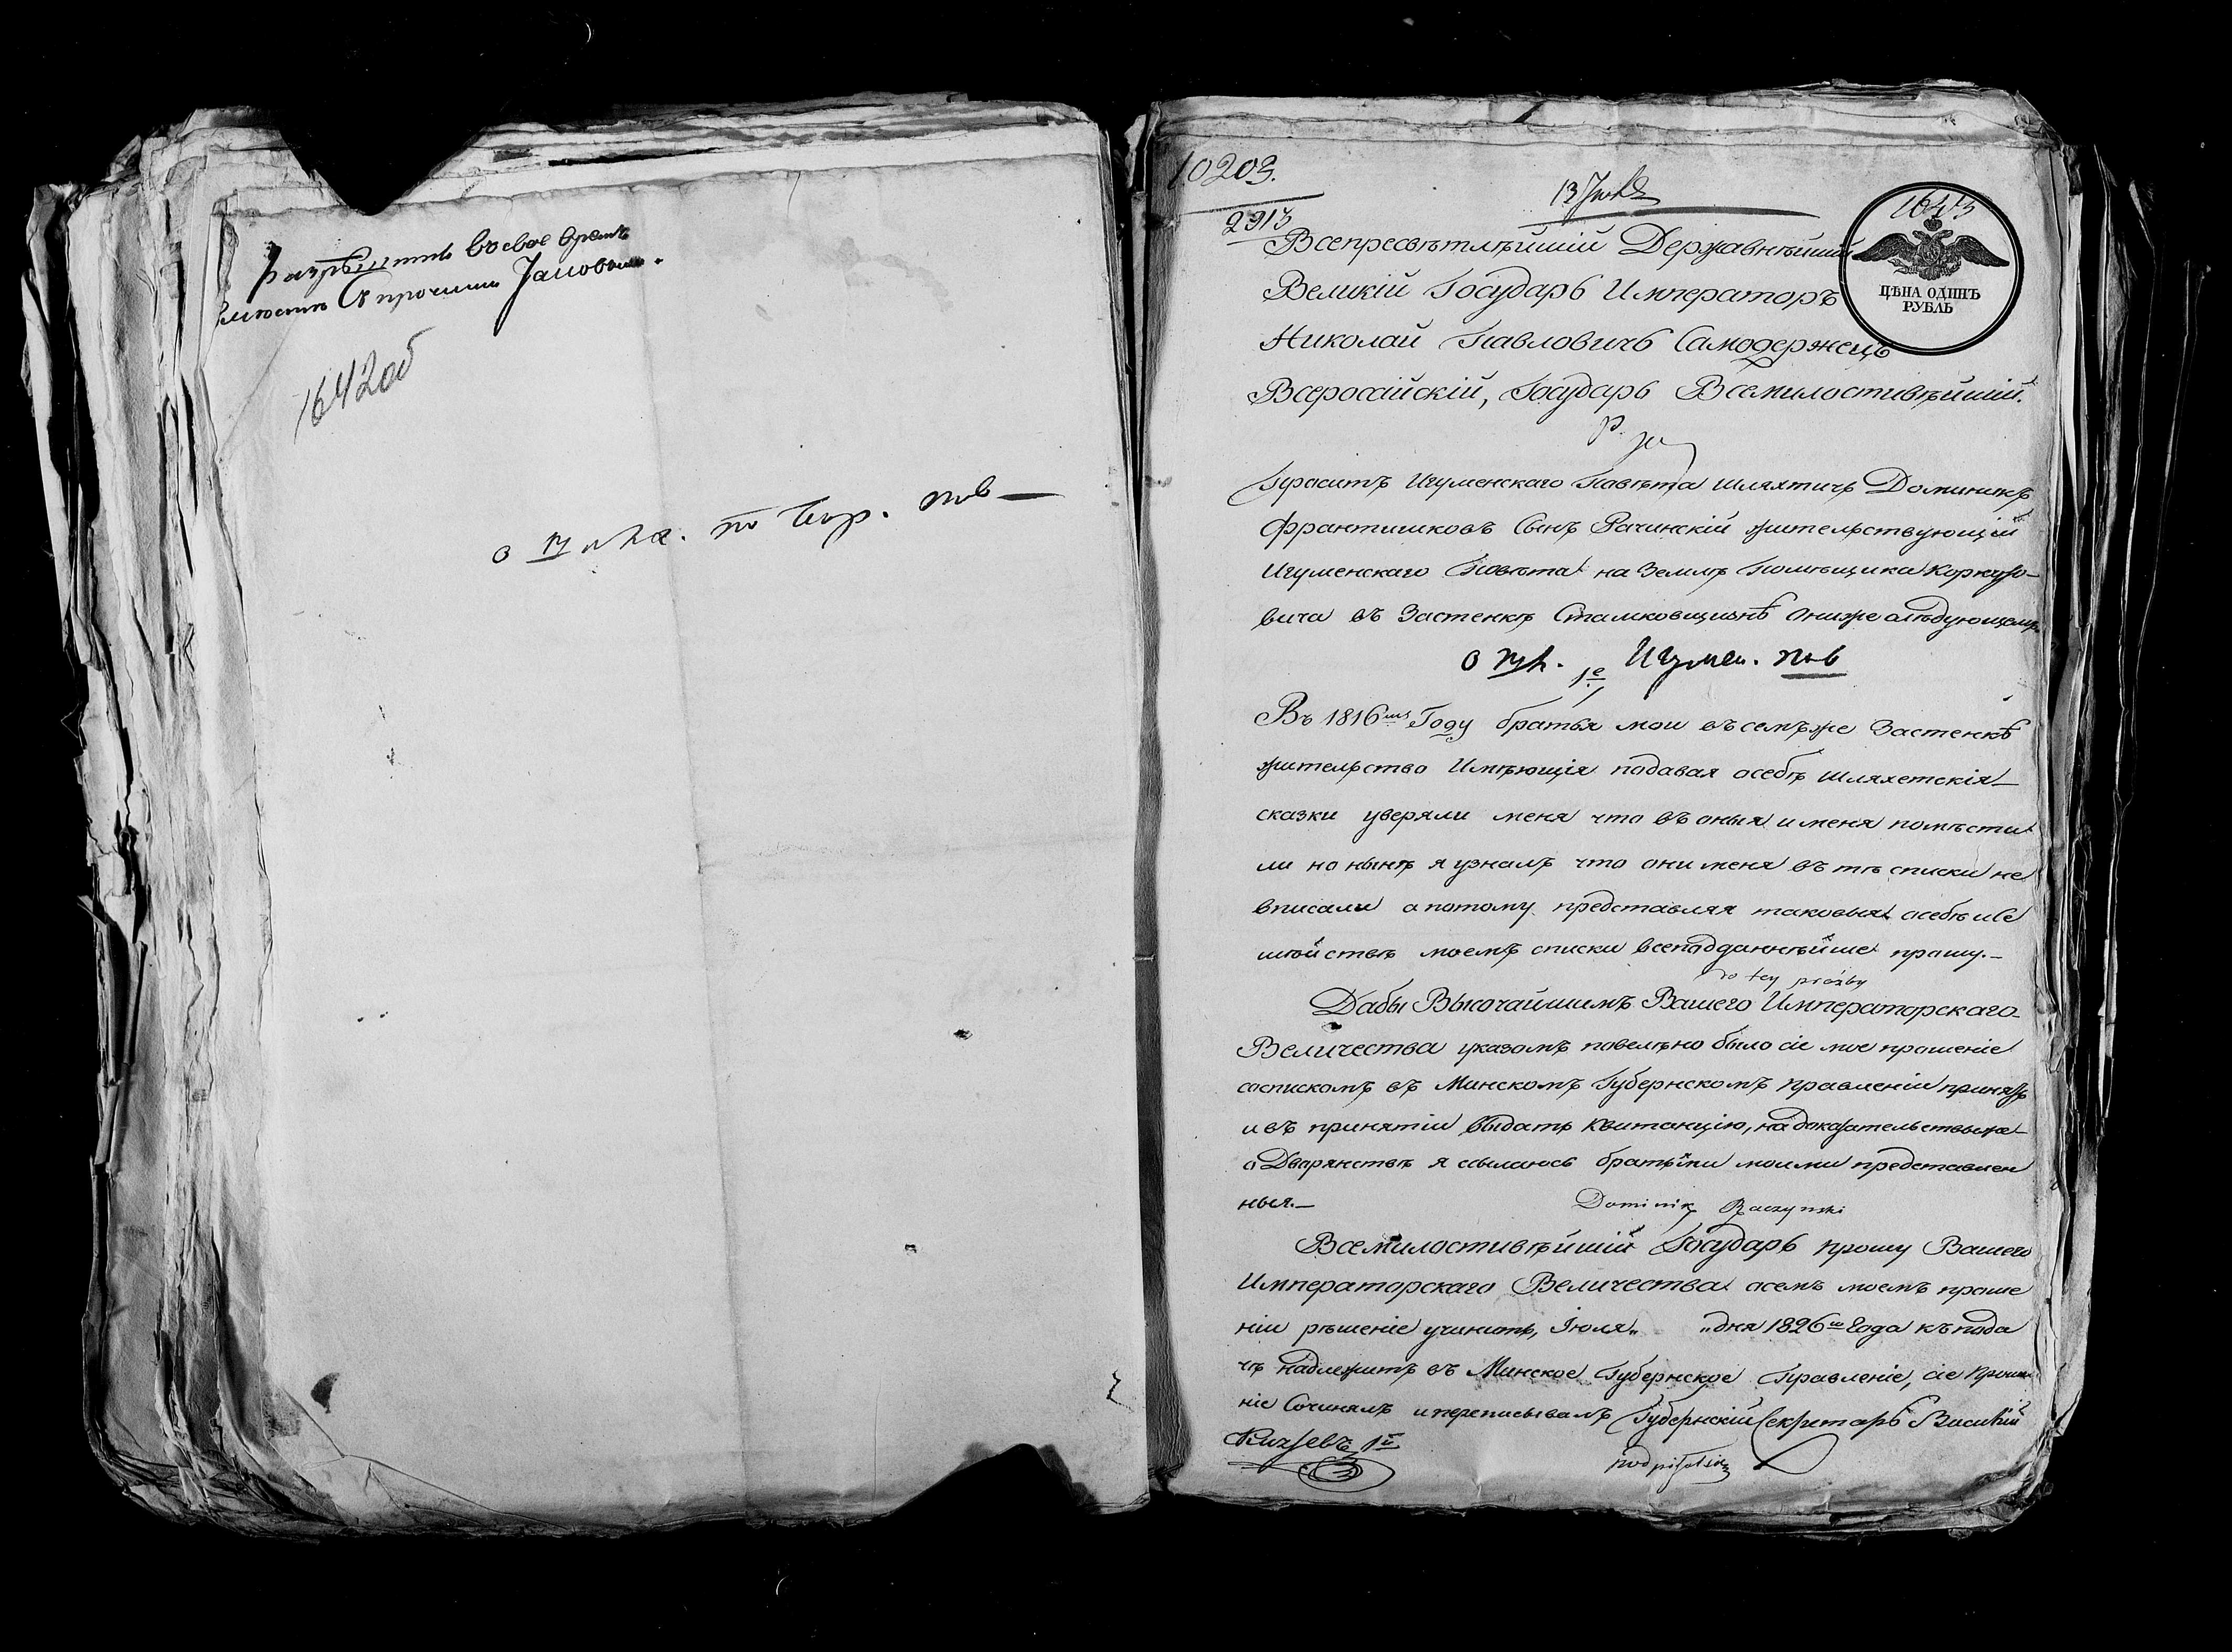 Разрешить въ свое время
вместе съ прочими
1642об
10203.
2913
1643
ЦѢНА ОДИНЪ
РУБЛЬ
Всепресвѣтлѣйшій Державнѣйшій
Великій Государь Императоръ
Николай Павловичъ Самодержецъ
Всеросійскій, Государь Всемилостивѣйшій.
Проситъ Игуменскаго Повѣта шляхтичъ Доминикъ
Франтишковъ Сынъ Рачинскій жительствующій
Игуменскаго Повѣта на Землѣ Помѣщика Коркузо-
вича въ Застенкѣ Сталковщизнѣ о нижеслѣдующемъ
Игумен. пов
1е
Въ 1816мъ Году братья мои въ семъ же Застенкѣ
жительство Имѣющія подавая о себѣ шляхетскія
сказки уверяли меня что въ оныя и меня помѣсти
ли но нынѣ я узналъ что они меня въ тѣ списки не
вписали а потому представляя таковыя о себѣ и се
мѣйствѣ моемъ списки всеподданнѣйше прошу.—
do tey prozby
Дабы Высочайшимъ Вашего Императорскаго
Величества указомъ повелѣно было сіе мое прошеніе
сосискомъ въ Минскомъ Губернскомъ Правленіи принять
и въ принятіи выдать квитанцію, на доказательства же
о Дворянствѣ я ссылаюсь братьями моими представлен
ныя.— Dominik Raczynski
Всемилостивѣйшій Государь прошу Вашего
Императорскаго Величества о семъ моемъ проше
ніи рѣшеніе учинить, Іюля „ „ дня 1826го Года къ пода
чѣ надлежитъ въ Минское Губернское Правленіе, сіе проше
ніе Сочинялъ и переписывалъ Губернскій Секретарь